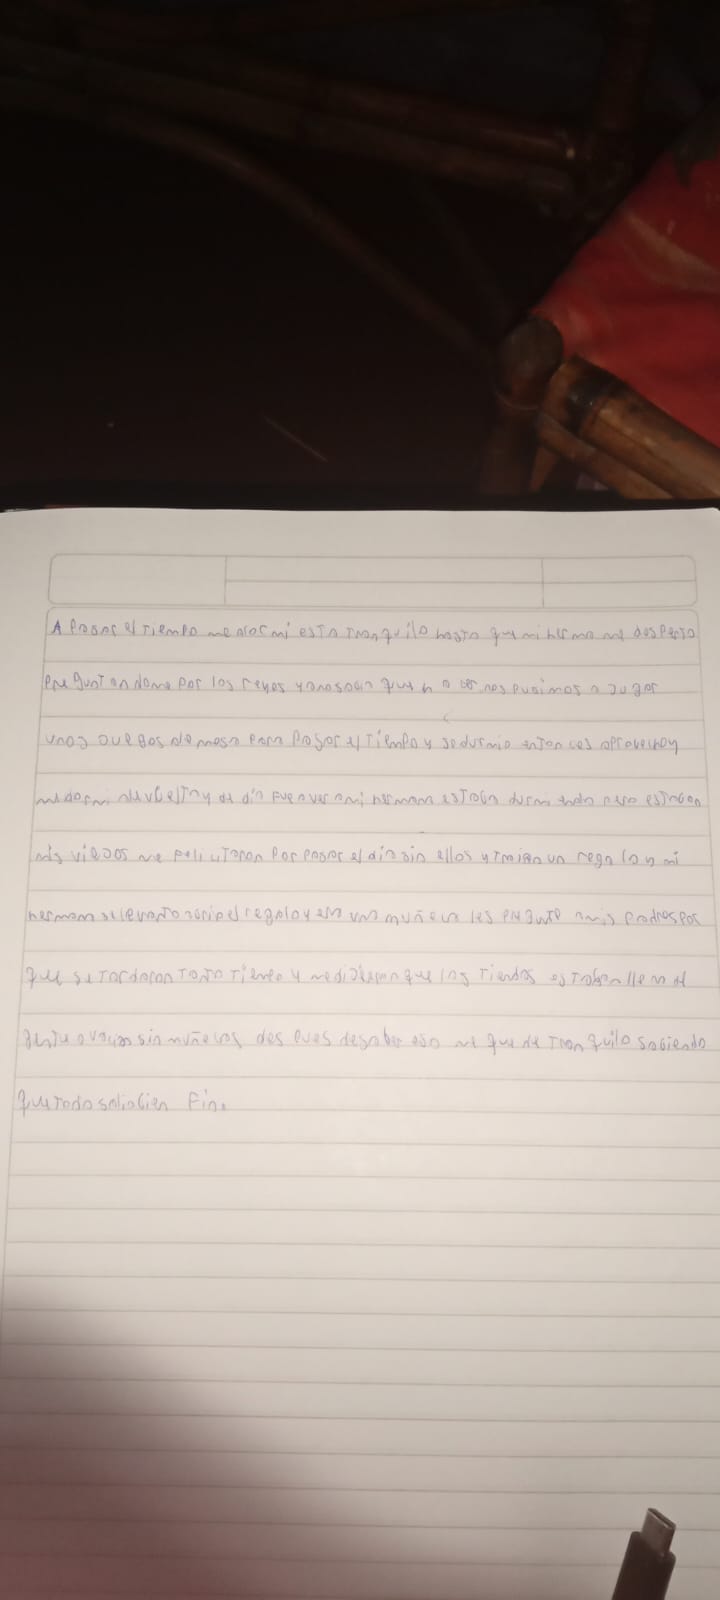 A Pasar el Tiempo me dormi esta tranquilo hasta que mi hermo me desperto
preguntandome por los reyes y no sabia que h a cer nos pusimos a Jugar
unos Juegos de mesa para Pasar el Tiempo y se durmio enton ces aproveche y
me dormi de vuelta y de dia Fue a ver a mi hermana estaba durmiendo pero estaban
mis viejos me felicitaron Por Pasar el dia sin ellos y traian un regalo y mi
hermana se levanto abrio el regalo y era una muñeca les pregunte a mis Padres por
que se Tardaron Tanto Tiempo y me dijeron que las Tiendas estaban llena de
gente o vacias sin muñecas des pues de saber eso me que de Tranquilo sabiendo
que Todo salio bien Fin.